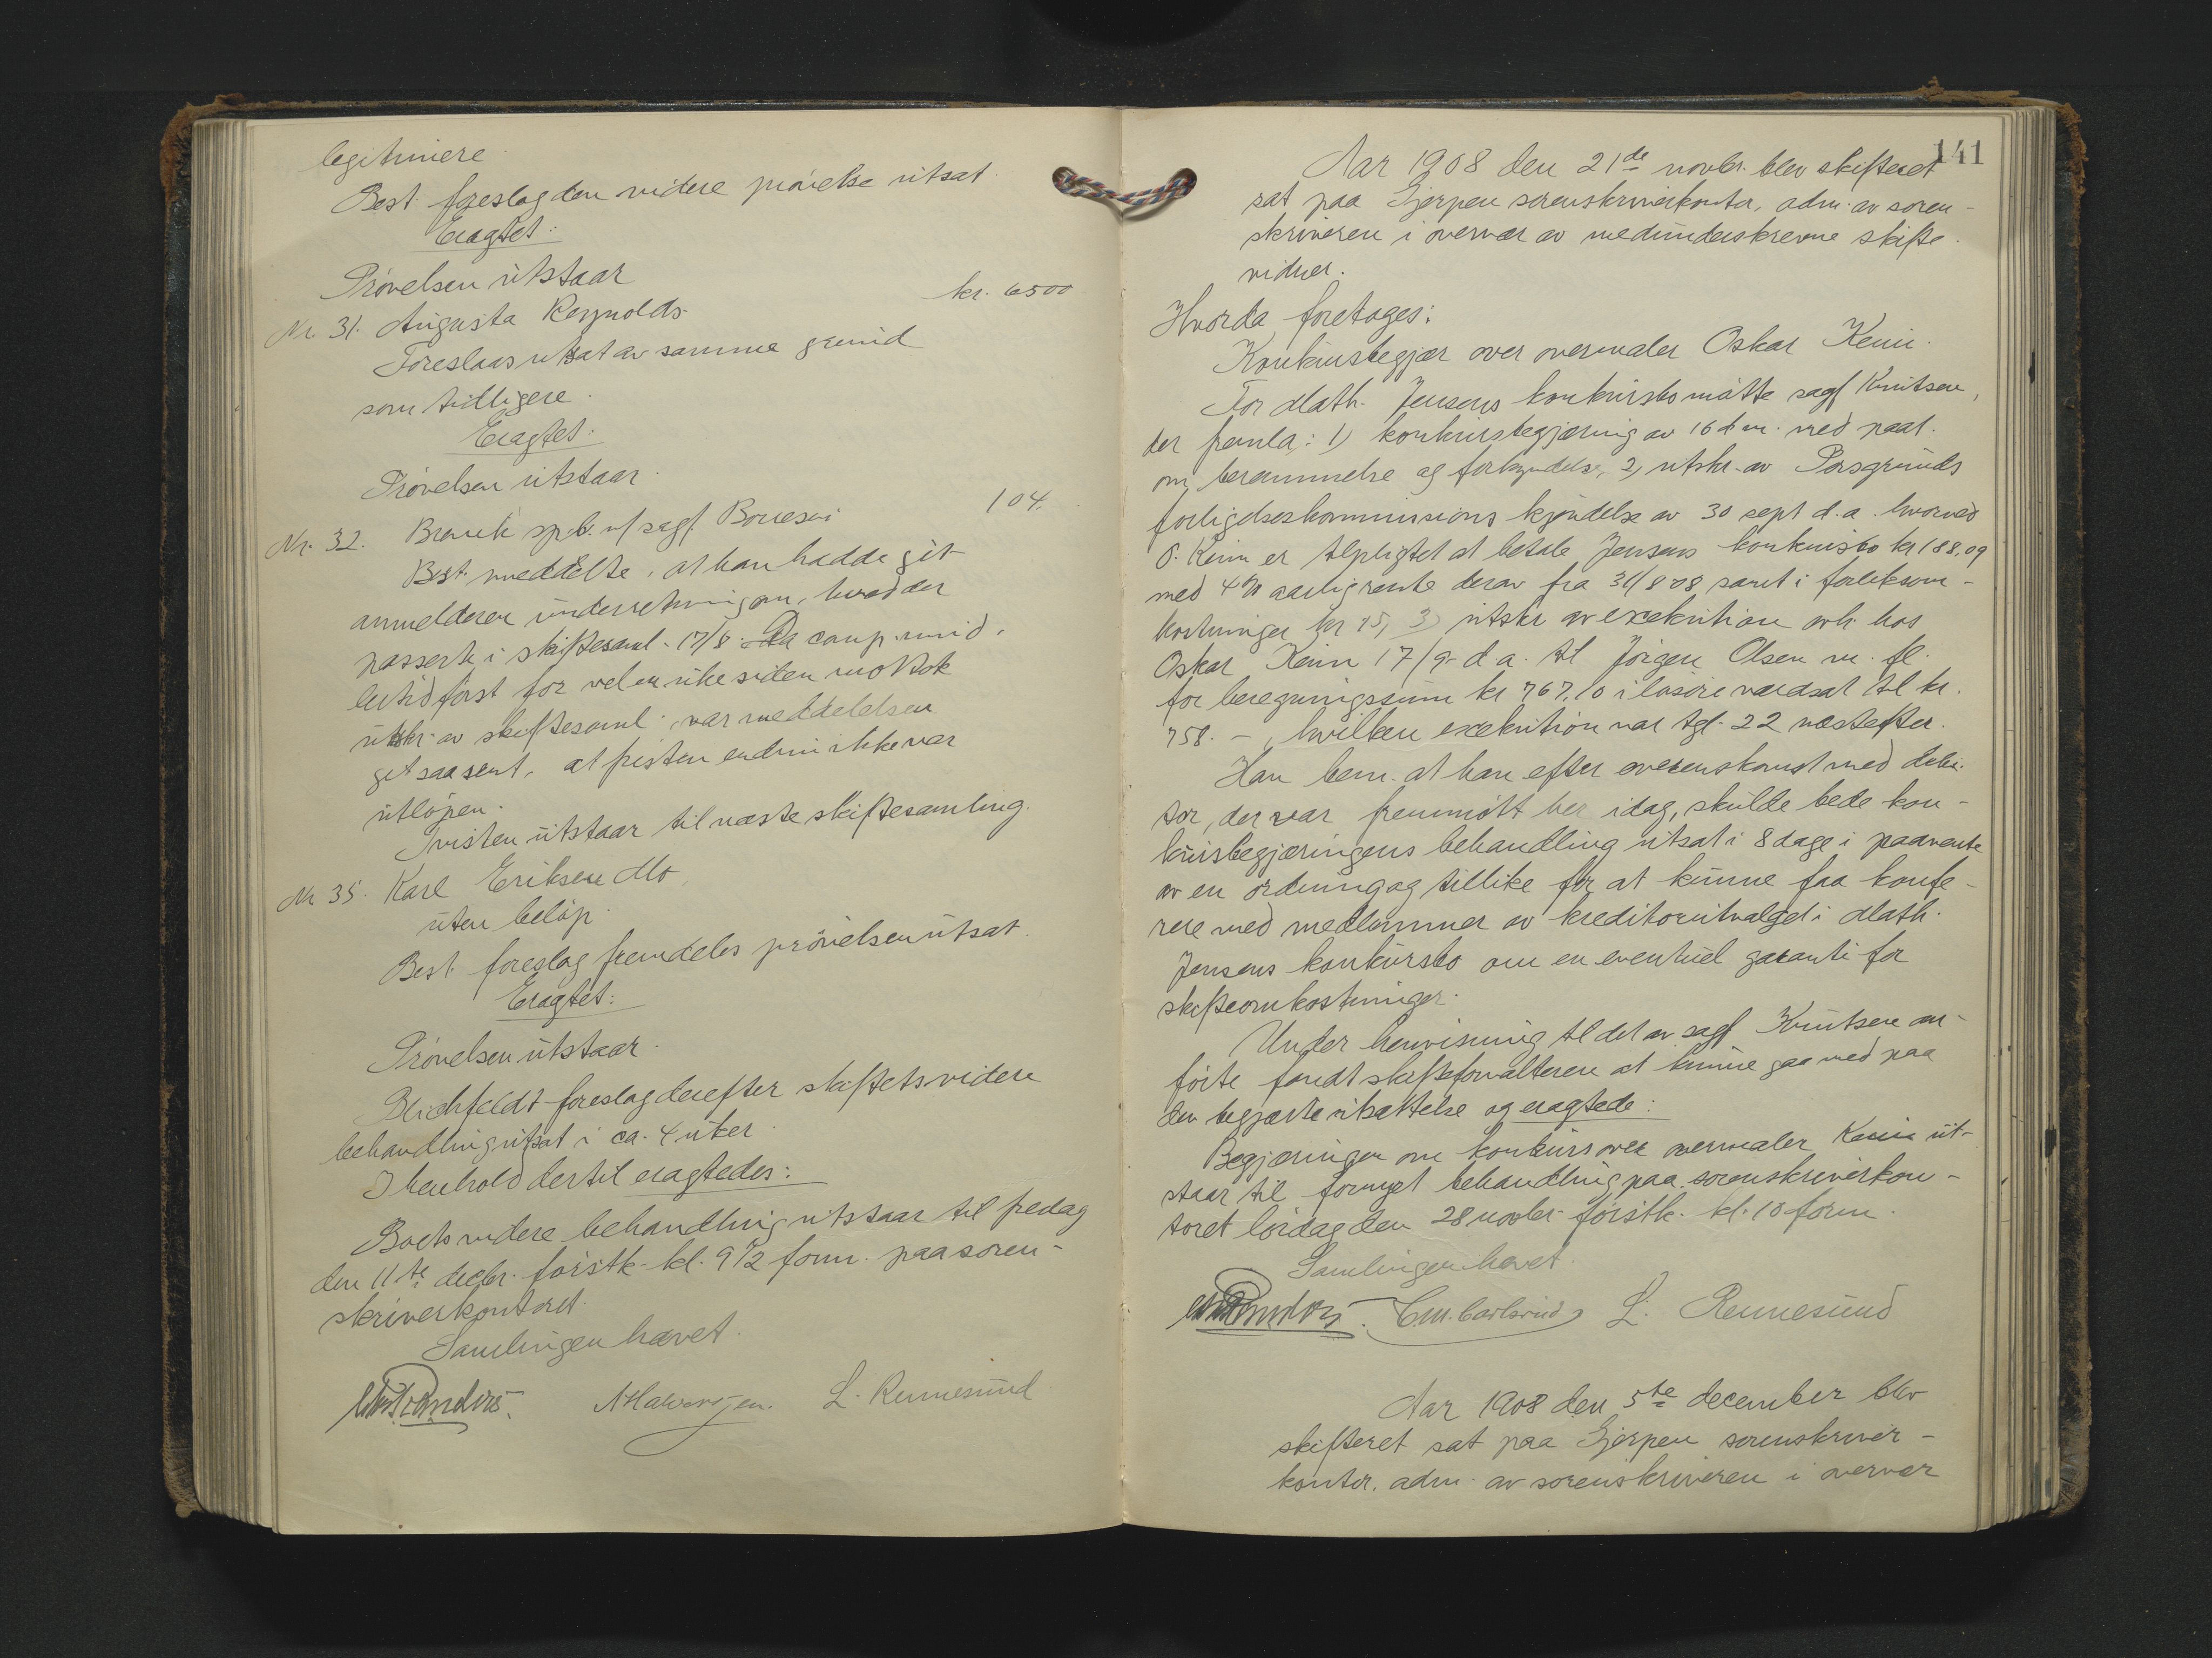 legitimere
Best. foreslog den videre prövelse utsat.
Eragtet:
Prövelsen utstaar
Nr. 31. Augusta Reynolds kr. 6500
Foreslaas utsat av samme grund
som tidligere.
Eragtet:
Prövelsen utstaar.
Nr. 32. Brevik spb. v/ sagf. Borresen 104.
Best. meddelte, at han hadde git
anmelderen underretning om, hvad der
passerte i skiftesaml. 17/8. Da comp. imid-
lertid först for vel en uke siden mottok
utskr. av skiftesaml., var meddelelsen
git saa sent, at fristen endnu ikke var
utlöpen.
Tvisten utstaar til næste skiftesamling.
Nr 35. Karl Eriksen Mo,
uten belöp.
Best. foreslog fremdeles prövelsen utsat.
Eragtet:
Prövelsen utstaar.
Blichfeldt foreslog derefter skiftets videre
behandling utsat i ca. 4 uker.
I henhold dertil eragtedes:
Boets videre behandling utstaar til fredag
den 11te decbr. förstk. kl. 9 1/2 form. paa soren-
skriverkontoret.
Samlingen hævet.
L. Rennesund
141
Aar 1908 den 21de novbr. blev skifteret
sat paa Gjerpen sorenskriverkontor, adm. av soren-
skriveren i overvær av medunderskrevne skifte-
vidner.
Hvorda foretages:
Konkursbegjær over overmaler Oskar Keim.
For Math. Jensens konkursbo mötte sagf Knutsen,
der fremla: 1) konkursbegjæring av 16 d.m. med paat.
om berammelse og forkyndelse, 2) utskr. av Porsgrunds
forligelseskommissions kjendelse av 30 sept d.a. hvorved
O. Keim er tilpligtet at betale Jensens konkursbo kr 188.09
med 4% aarlig rente derav fra 31/8 08 samt i forliksom-
kostninger kr 15, 3) utskr av exekution avh. hos
Oskar Keim 17/9 d a. til Jörgen Olsen m. fl.
for beregningssum kr 767.10 i lösöre værdsat til kr.
758. –, hvilken exekution var tgl. 22 næstefter.
Han bem. at han efter overenskomst med debi-
tor, der var fremmött her idag, skulde bede kon-
kursbegjæringens behandling utsat i 8 dage i paavente
av en ordning og tillike for at kunne faa konfe-
rere med medlemmer av kreditorutvalget i Math.
Jensens konkursbo om en eventuel garanti for
skifteomkostninger.
Under henvisning til det av sagf Knutsen an-
förte fandt skifteforvalteren at kunne gaa med paa
den begjærte utsættelse og eragtede:
Begjæringen om konkurs over overmaler Keim ut-
staar til fornyet behandling paa sorenskriverkon-
toret lördag den 28 novbr. förstk. kl. 10 form.
Samlingen hævet.
L. Rennesund
Aar 1908 den 5te december blev
skifteret sat paa Gjerpen sorenskriver-
kontor, adm. av sorenskriveren i overvær